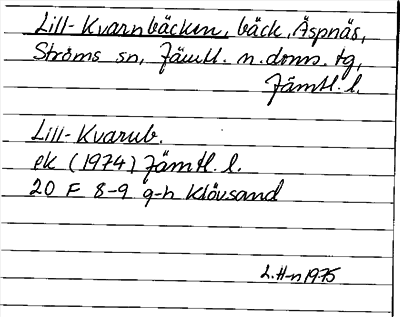 Lill-Kvarnbäcken, bäck, Äspnäs,
Ströms sn, Jämtl. n. doms. tg,
Jämtl. l.
Lill-Kvarnb.
ek (1974) Jämtl. l.
20 F 8-9 g-h Klövsand
L. H-n 1975